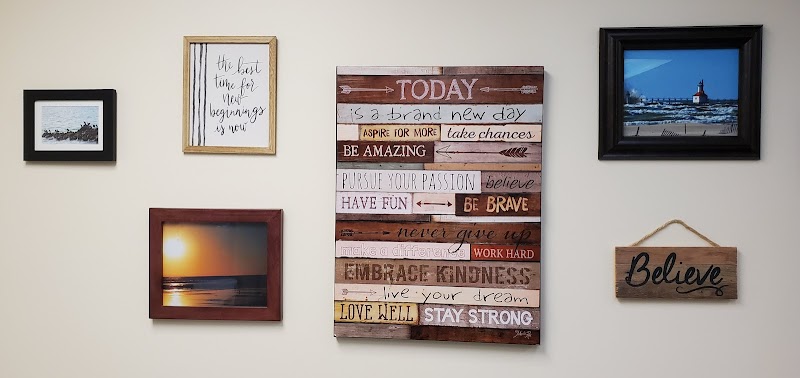 the best
time for
new
beginnings
is now
TODAY
is a brand new day
ASPIRE FOR MORE take chances
BE AMAZING
PURSUE YOUR PASSION believe
HAVE FUN BE BRAVE
never give up
make a difference WORK HARD
EMBRACE KINDNESS
live your dream
LOVE WELL STAY STRONG
Believe